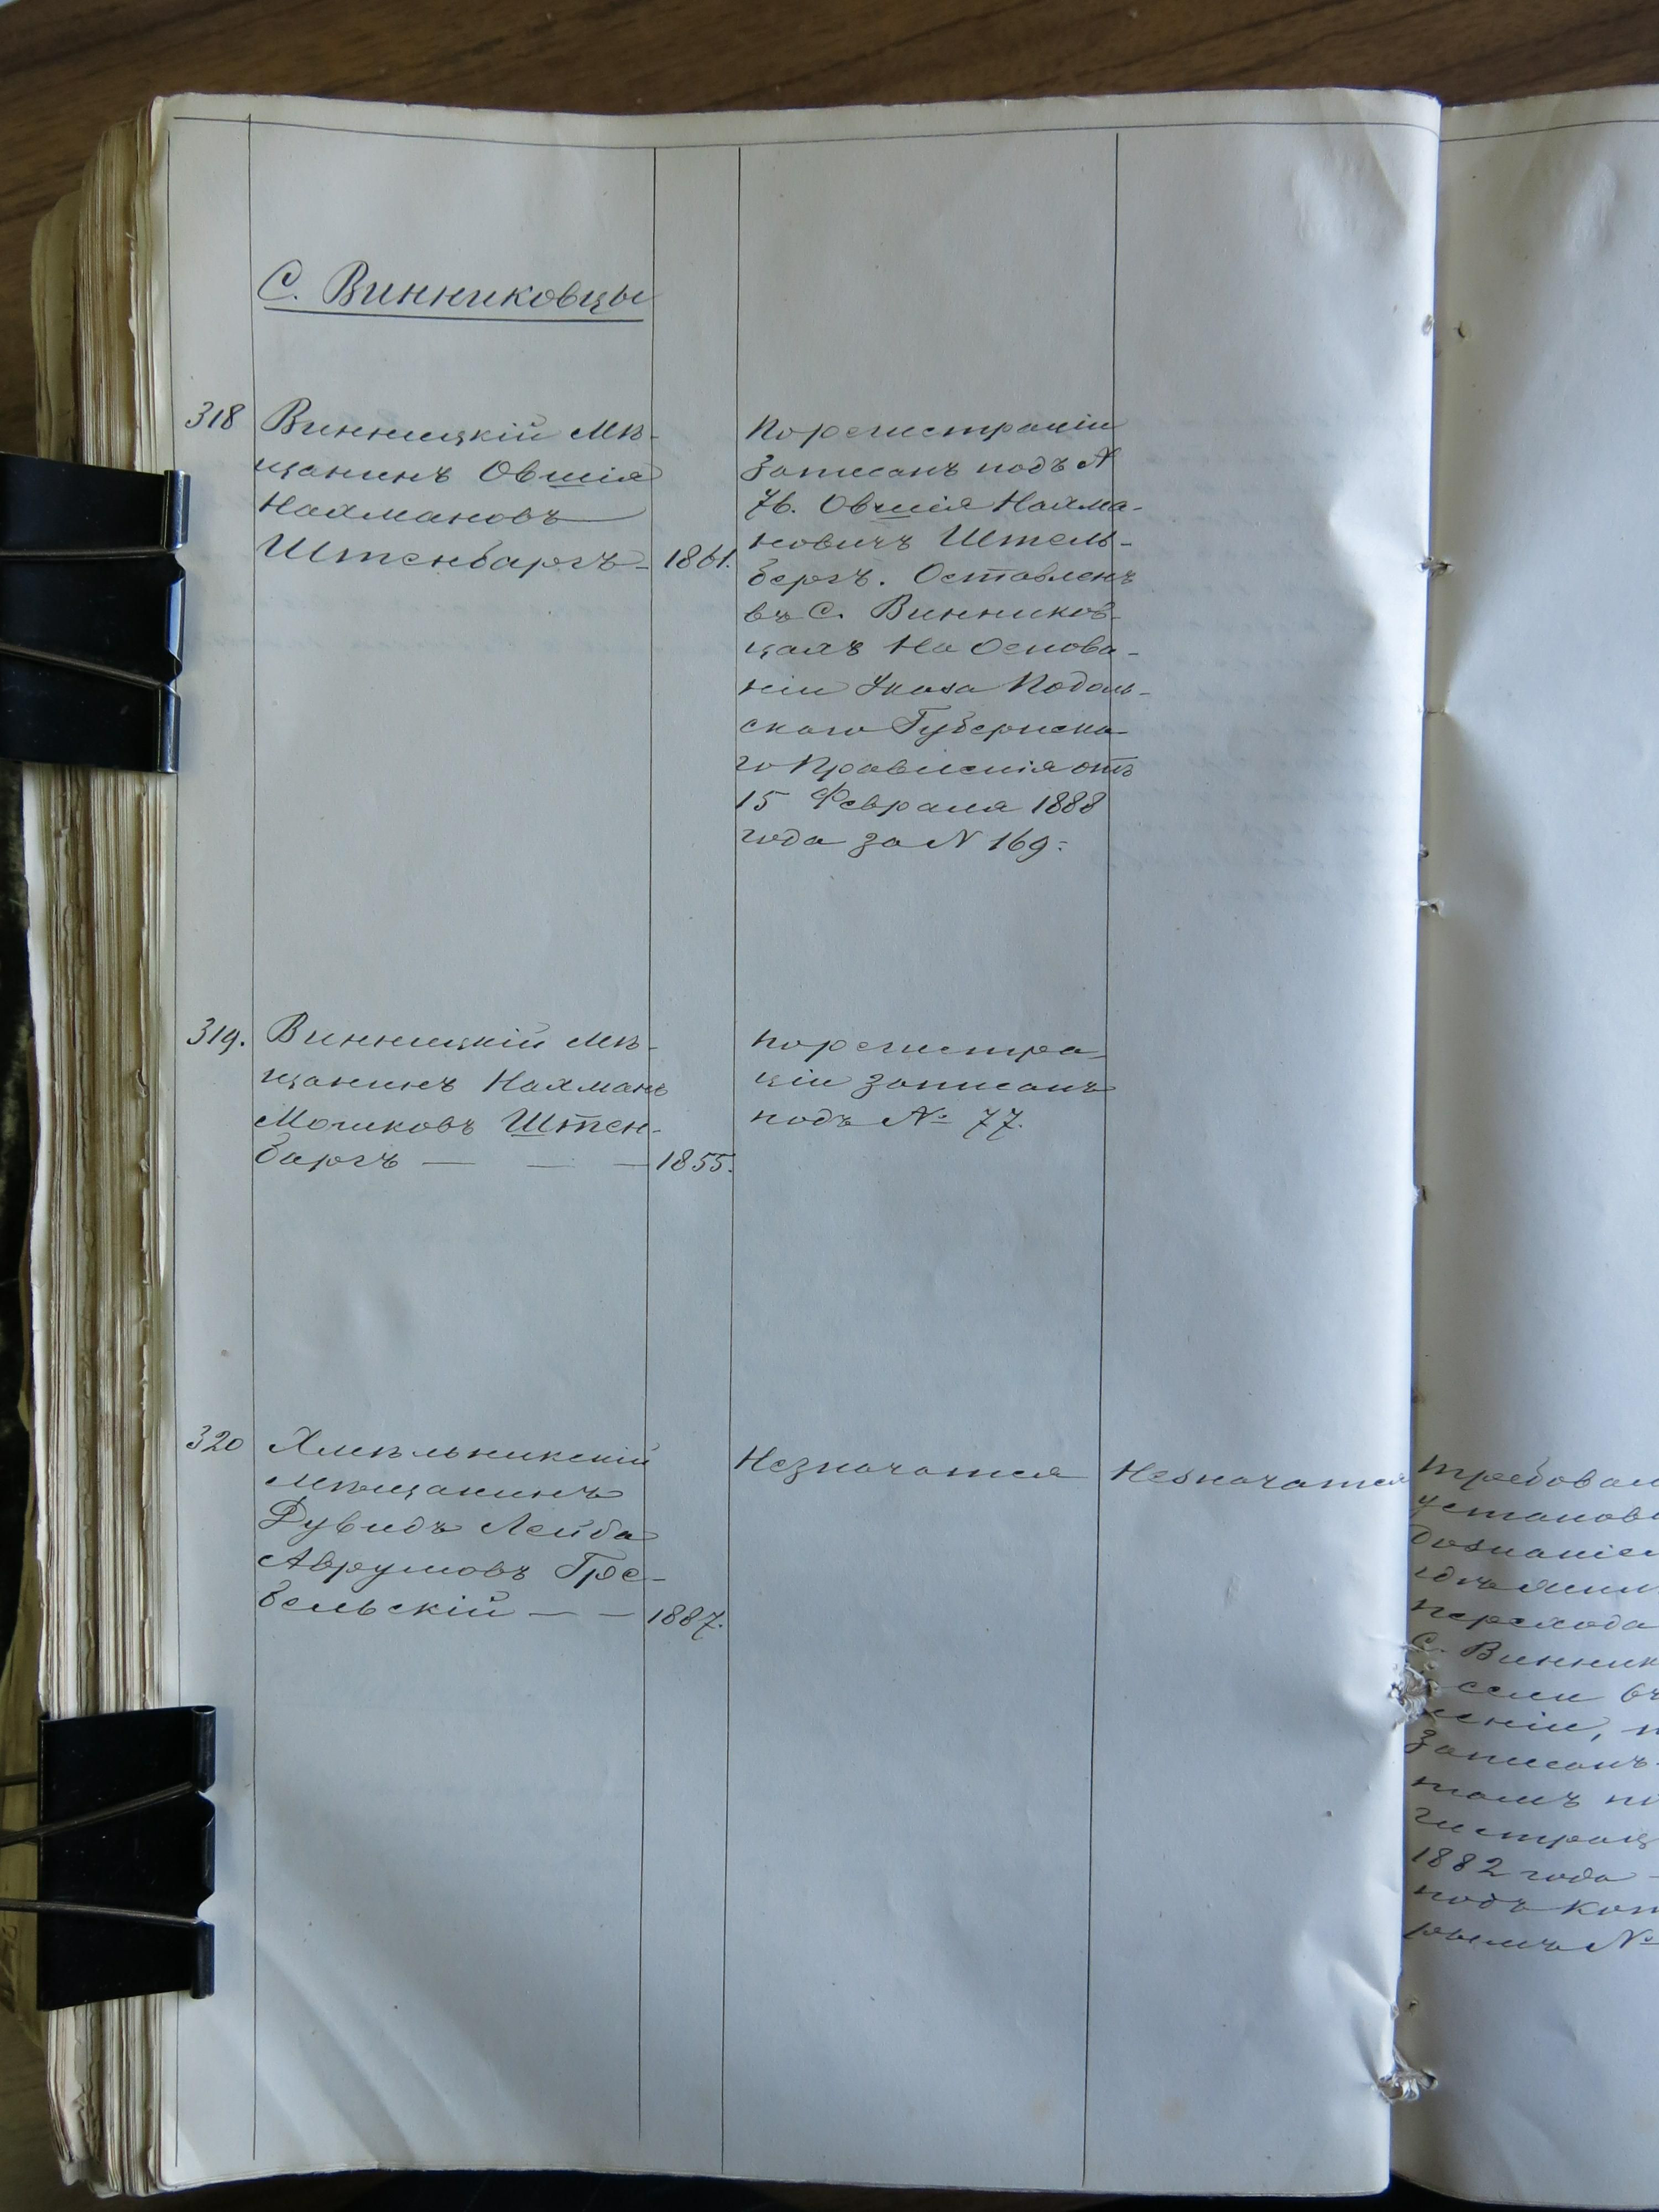 С. Винниковцы
318 Винницкій мѣ-
щанинъ Овшія
Нахмановъ
Штенбаргъ - 1861.
По регистраціи
записанъ подъ N
76. Овшія Нахма-
новичъ Штель-
бергъ. Оставленъ
въ С. Винников-
цахъ на основа-
ніи Указа Подоль-
скаго Губернска-
го Правленія отъ
15 Февраля 1888
года за N 169.
319. Винницкій мѣ-
щанинъ Нахманъ
Мошковъ Штен-
баргъ — — — 1855.
по регистра-
ціи записанъ
подъ № 77.
320 Хмѣльникскій
мѣщанинъ
Дувидъ Лейба
Аврумовъ Гре-
бельскій — — 1887.
Незначатся
Незначатся
требован
установ
дознаніе
перехода
С. Винник
сели въ
леніи, н
записанъ
гистрац
1882 года -
подъ кот
рымъ №